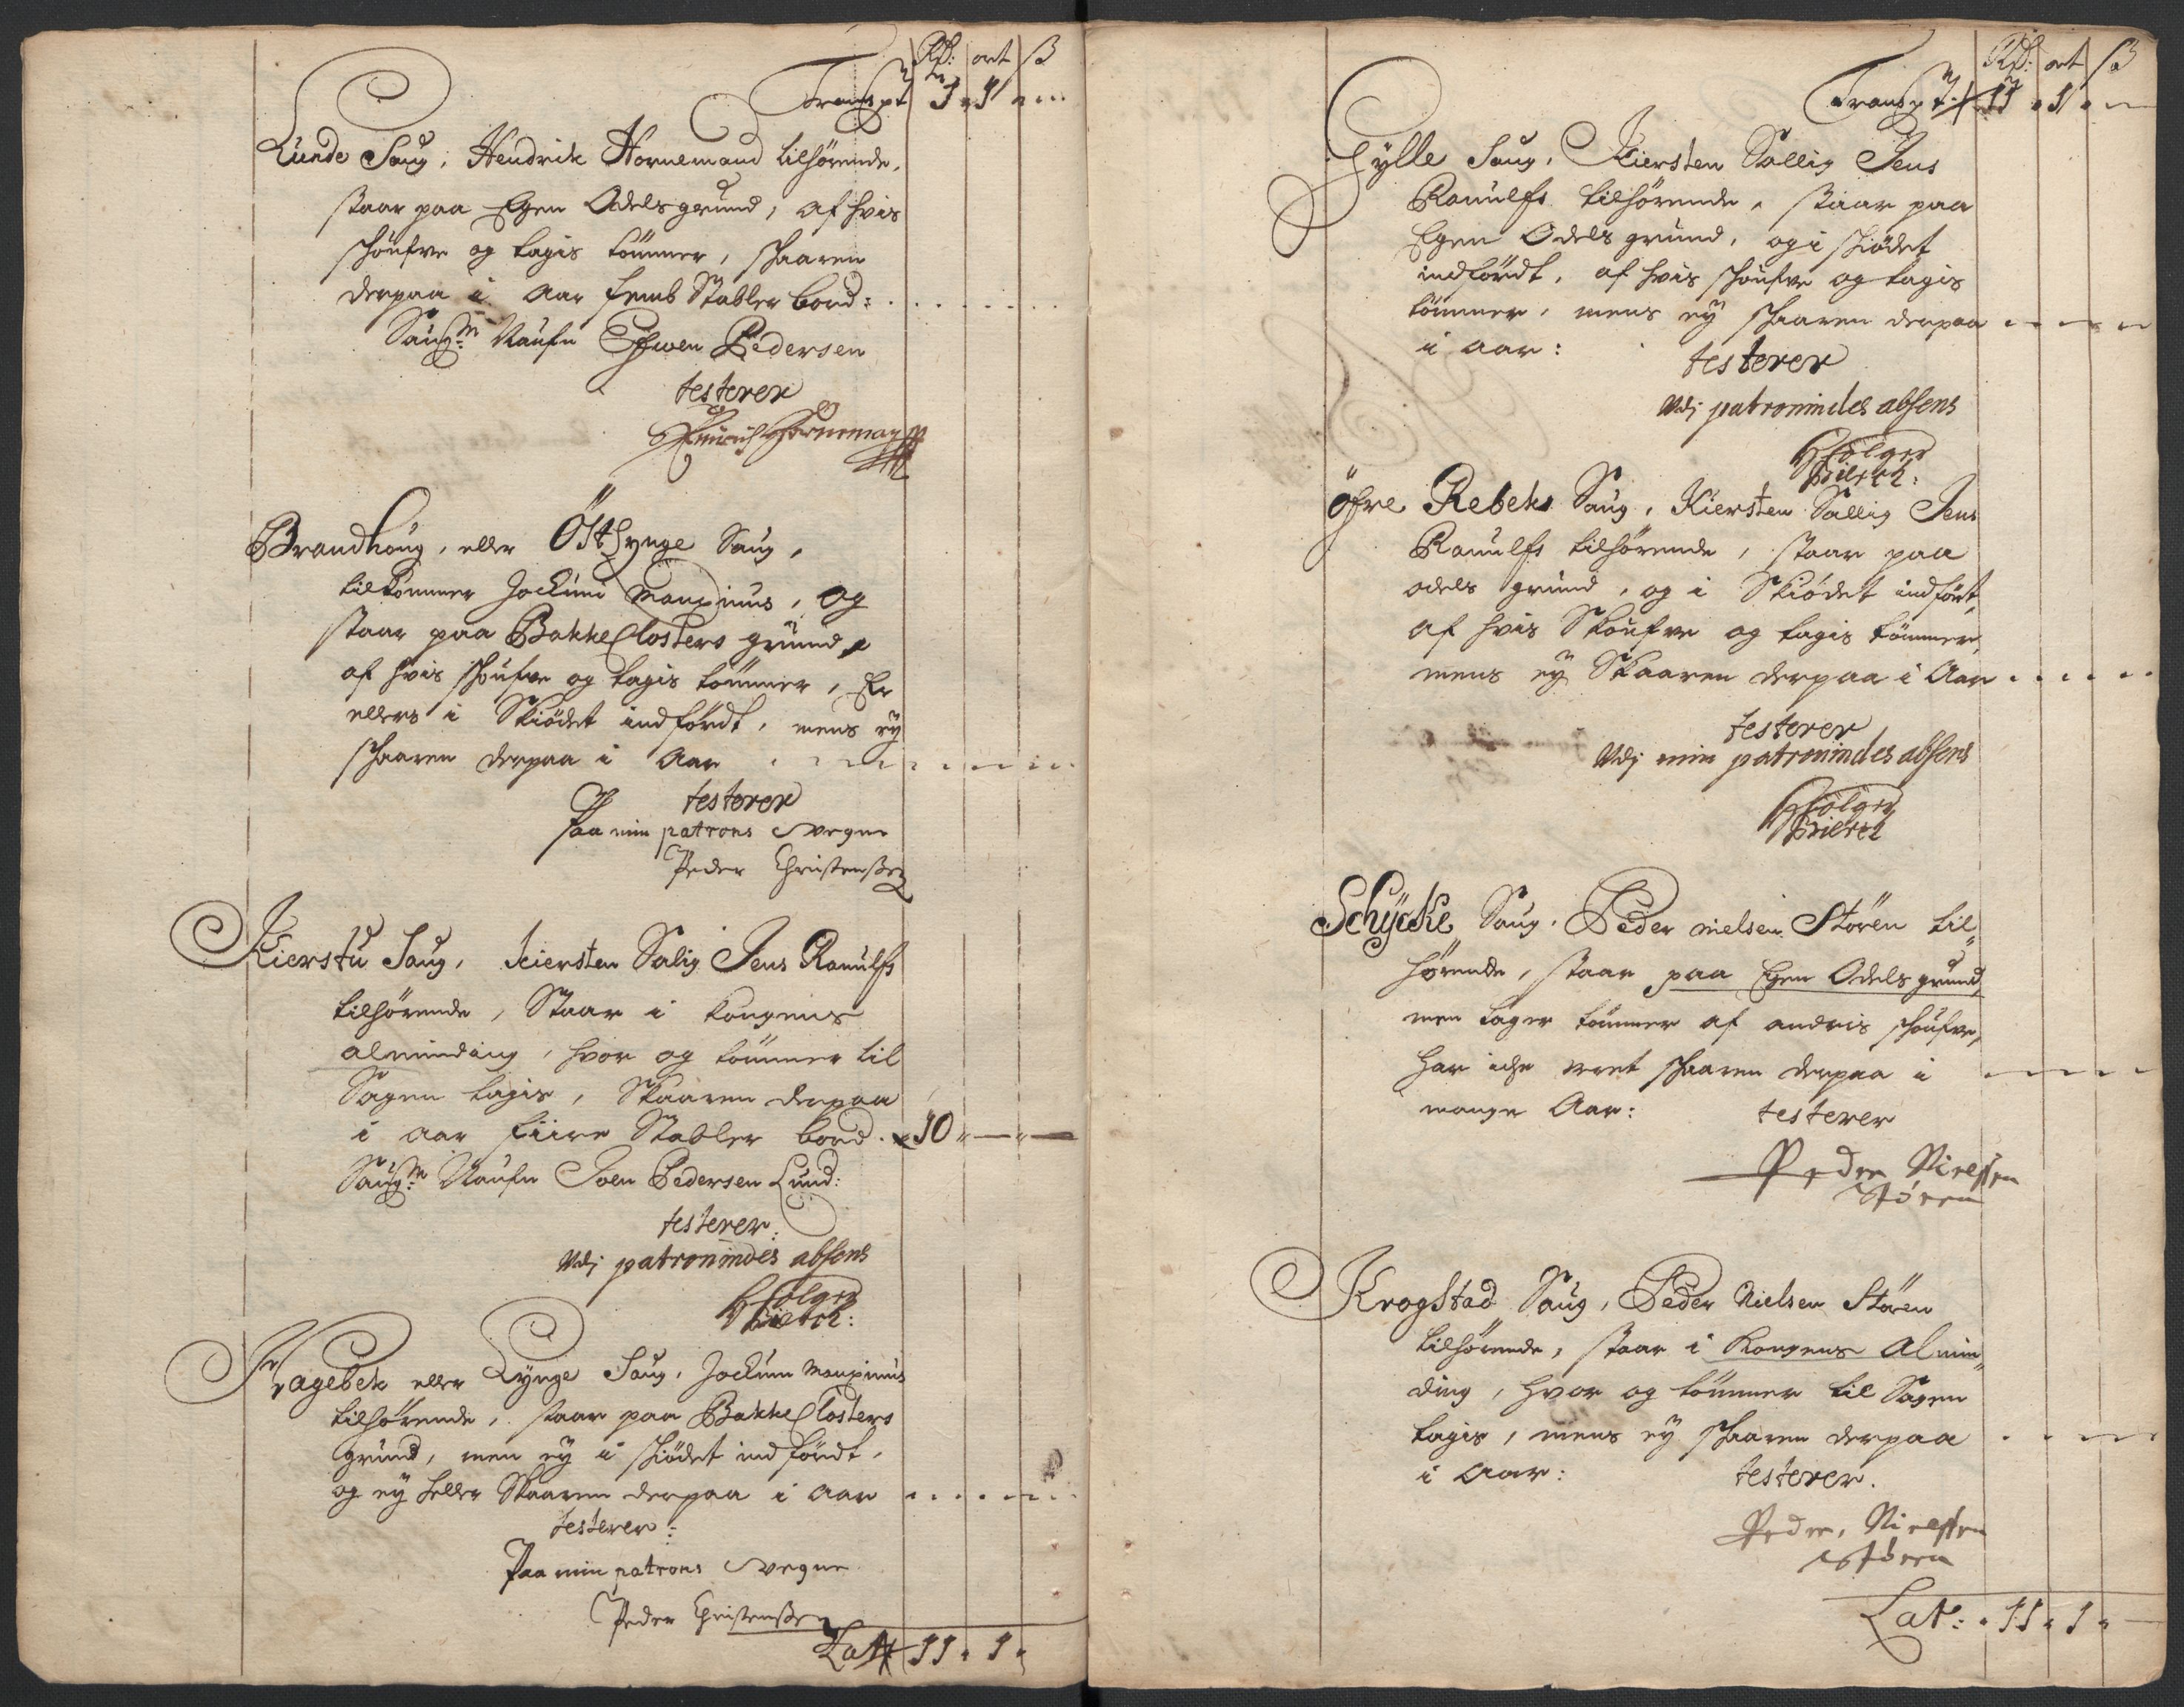 Rdr: ort ß
Transpt 1 " 1 "
Lunde Saug, Hendrik Hornemand tilhørende,
staar paa Egen Odels grund, af hvis
schoufve og tagis tømmer, schaaren
derpaa i Aar femb Stabler bord:
Saugm: Naufn Efwen Pedersen
testerer
Hinrich Hornemann
Brandhoug, eller Østlynge Saug,
tilkommer Jochim , og
staar paa BakkeClosters grund,
af hvis schoufve og tagis tømmer, Er
ellers i Skiødet indfördt, mens ey
schaaren derpaa i Aar
testerer
Paa min patrons vegne
Peder Christensen
Kierstu Saug, Kiersten Salig Jens Ranulfs
tilhørende, Staar i Kongens
alminding, hvor og tømmer til
Sagen tagis, Skaaren derpaa
i aar fiire Stabler bord. 10 " — " —
Saugm: Naufn Joen Pedersen Lund:
testerer.
Udj patronindes absens
Hölger
eller Lynge Saug, Jochum
tilhørende, staar paa BakkeClosters
grund, men ey i schiødet indfördt,
og ey heller Skaaren derpaa i Aar
testerer:
Paa min patrons vegne
Peder Christensen
Lat 11 " 1 "
Rdr: ort ß
Transpt: 11 " 1 " —
Gylle Saug, Kiersten Sallig Jens
Ranulfs tilhørende, staar paa
Egen Odels grund, og i schiødet
indfördt, af hvis schoufve og tagis
tømmer, mens ey schaaren derpaa
i aar:
testerer
Udj patronindes absens
Hölger
Öfre Rebeks Saug, Kiersten Sallig Jens
Ranulfs tilhørende, staar paa
odels grund, og i Skiødet indfört,
af hvis Skoufve og tagis tømmer,
mens ey Skaaren derpaa i Aar
testerer
Udj min patronindes absens
Hölger
Schycke Saug, Peder nielsen Stören til-
hørende, staar paa Egen Odels grund,
men tager tømmer af andris schoufve,
har iche veret schaaren derpaa i
mange Aar:
testerer
Peder Nielssen
Støren
Krogstad Saug, Peder Nielsen Stören
tilhørende, staar i Kongens Almin-
ding, hvor og tømmer til Sagen
tagis, mens ey schaaren derpaa
i Aar:
testerer.
Peder Nielssen
Støren
Lat: 11 " 1 " —